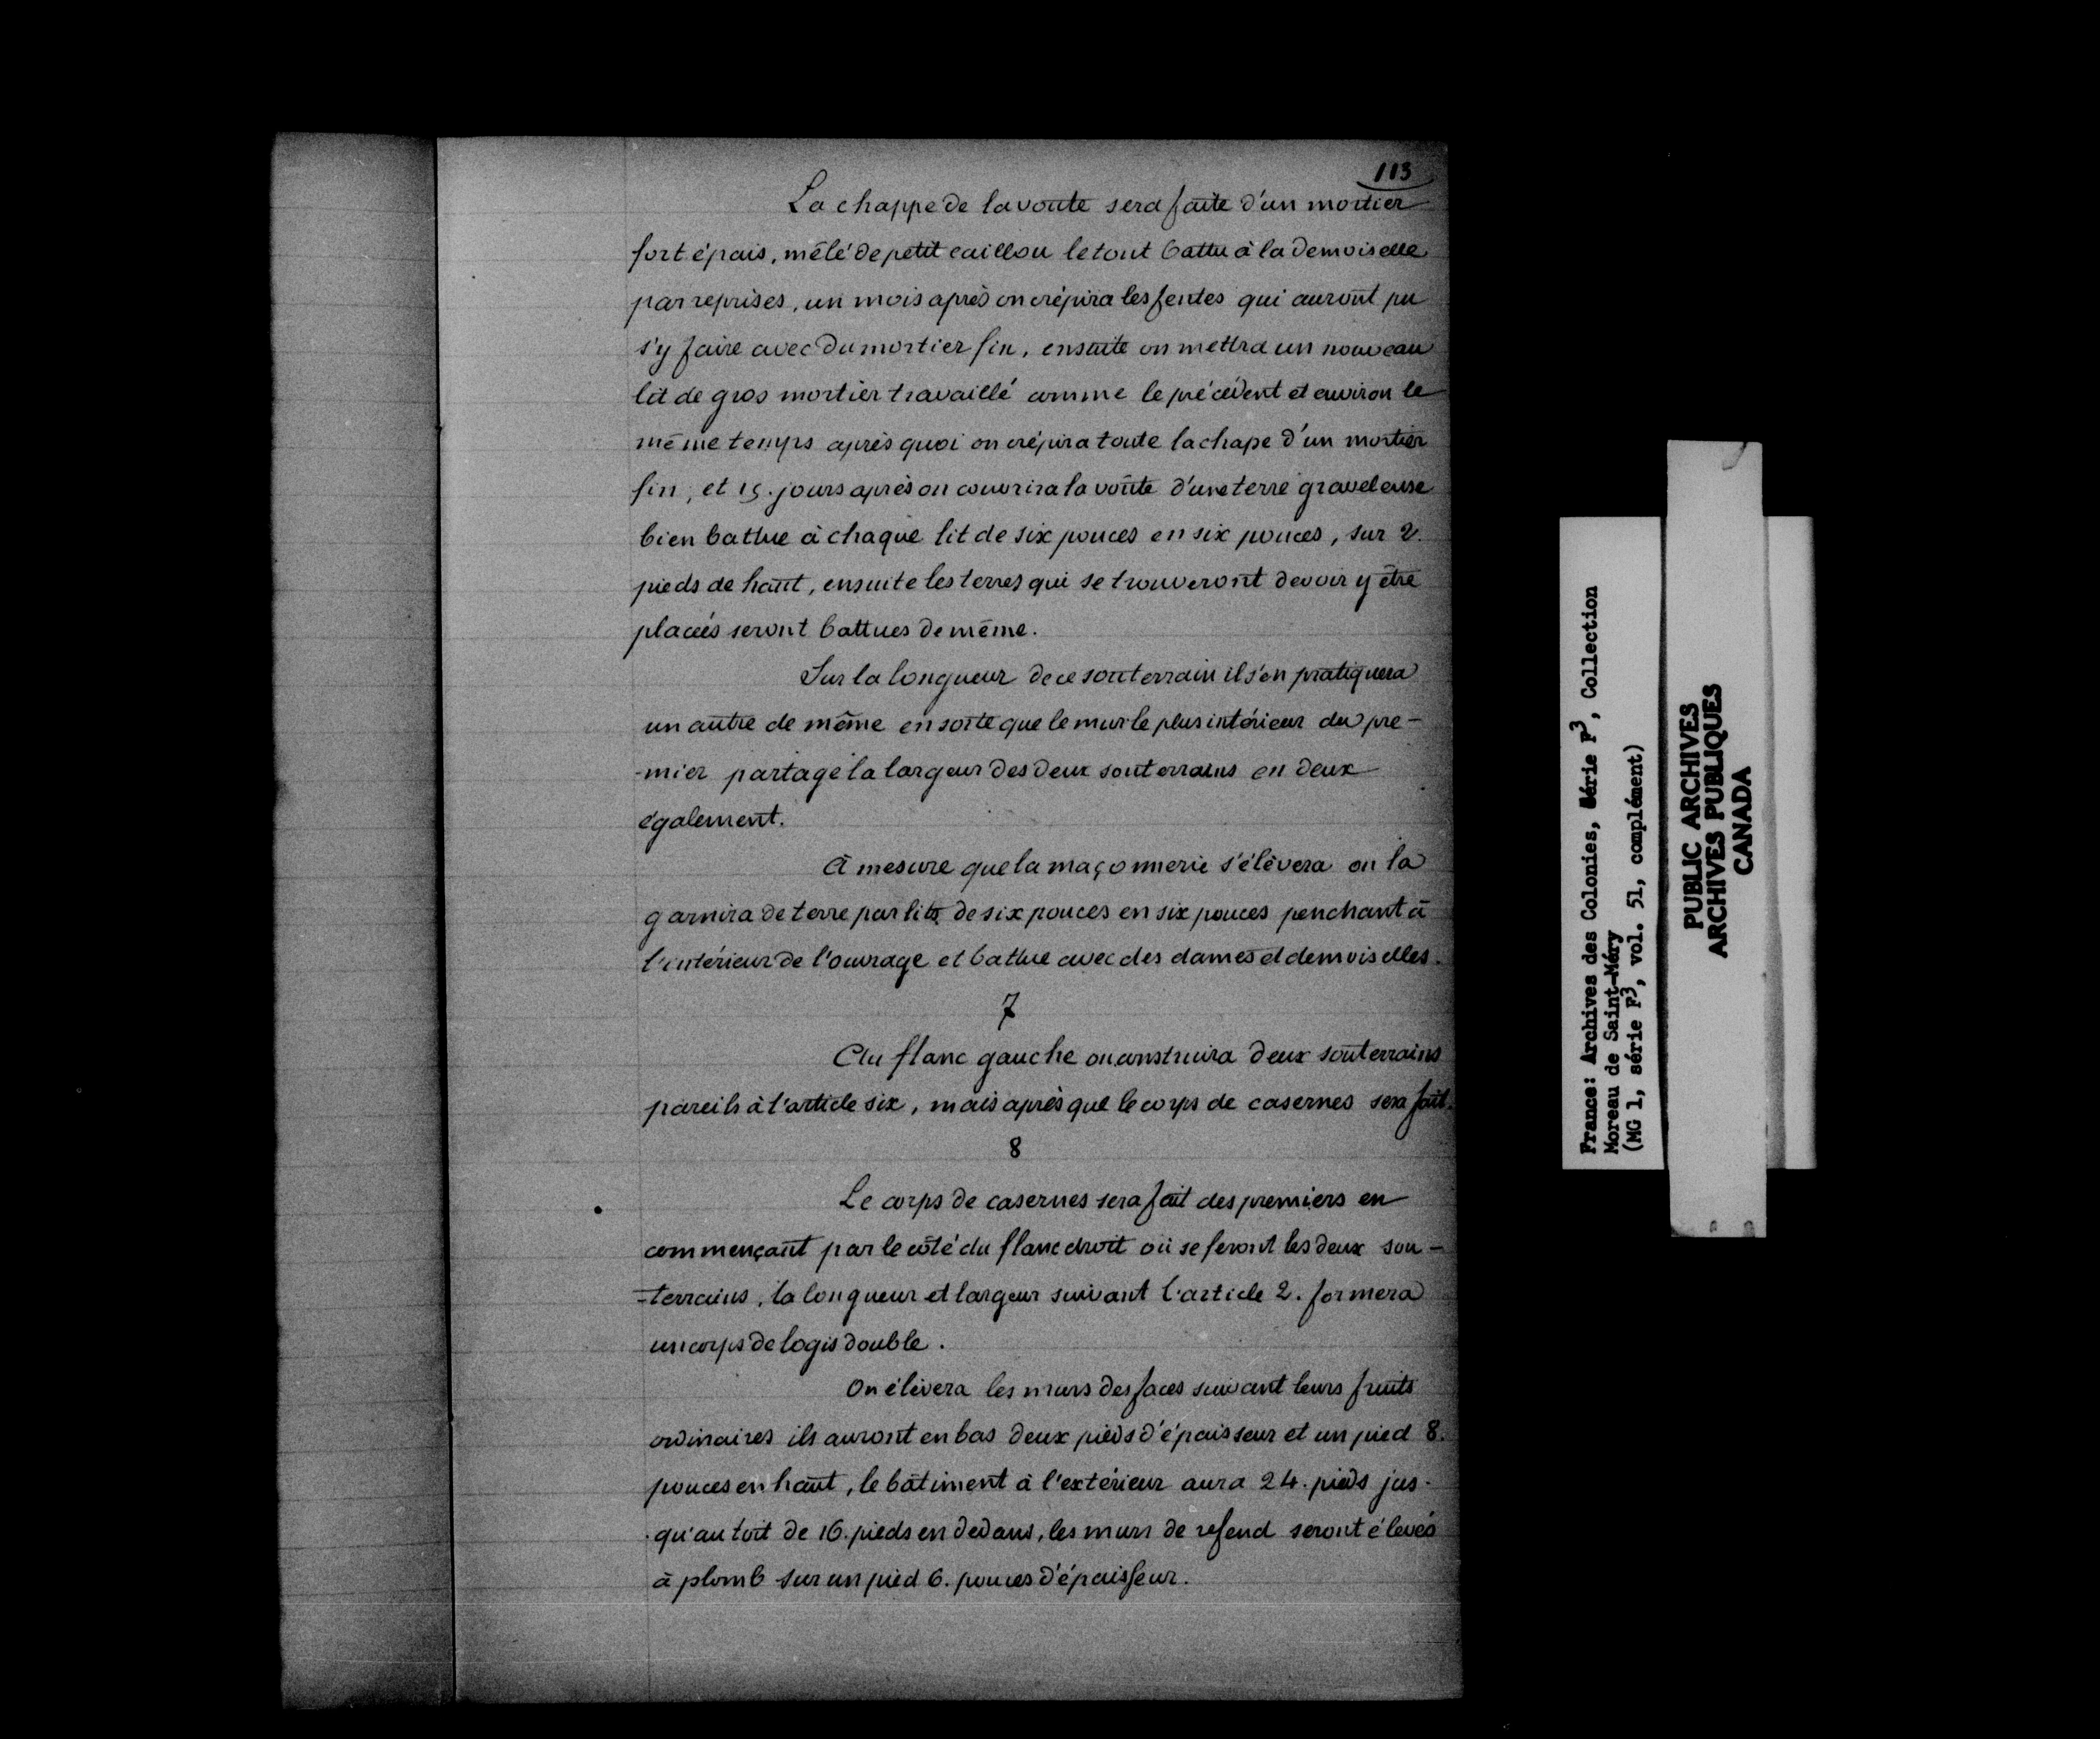 113
La chappe de la voute sera faite d'un mortier
fort épais, mêlé de petit caillou le tout battu à la demoiselle
par reprises, un mois après on crépira les fentes qui auront pu
s'y faire avec du mortier fin, ensuite on mettra un nouveau
lit de gros mortier travaillé comme le précédent et environ le
même temps après quoi on crépira toute la chape d'un mortier
fin, et 15. jours après on couvrira la voûte d'une terre graveleuse
bien battue à chaque lit de six pouces en six pouces, sur 2.
pieds de haut, ensuite les terres qui se trouveront devoir y être
placées seront battues de même.
Sur la longueur de ce souterrain il s'en pratiquera
un autre de même en sorte que le mur le plus intérieur du pre-
-mier partage la largeur des deux souterrains en deux
également.
A mesure que la maçonnerie s'élèvera on la
garnira de terre par lits de six pouces en six pouces penchant à
l'intérieur de l'ouvrage et battue avec des dames et demoiselles.
7
Au flanc gauche on construira deux souterrains
pareils à l'article six, mais après que le corps de casernes sera fait.
8
Le corps de casernes sera fait des premiers en
commençant par le côté du flanc droit où se feront les deux sou-
-terrains, la longueur et largeur suivant l'article 2. formera
un corps de logis double.
On élèvera les murs des faces suivant leurs fruits
ordinaires ils auront en bas deux pieds d'épaisseur et un pied 8.
pouces en haut, le bâtiment à l'extérieur aura 24. pieds jus-
-qu'au toit de 16. pieds en dedans, les murs de refend seront élevés
à plomb sur un pied 6. pouces d'épaisseur.
France: Archives des Colonies, Série F3, Collection
Moreau de Saint-Méry
(MG 1, série F3, vol. 51, complément)
PUBLIC ARCHIVES
ARCHIVES PUBLIQUES
CANADA